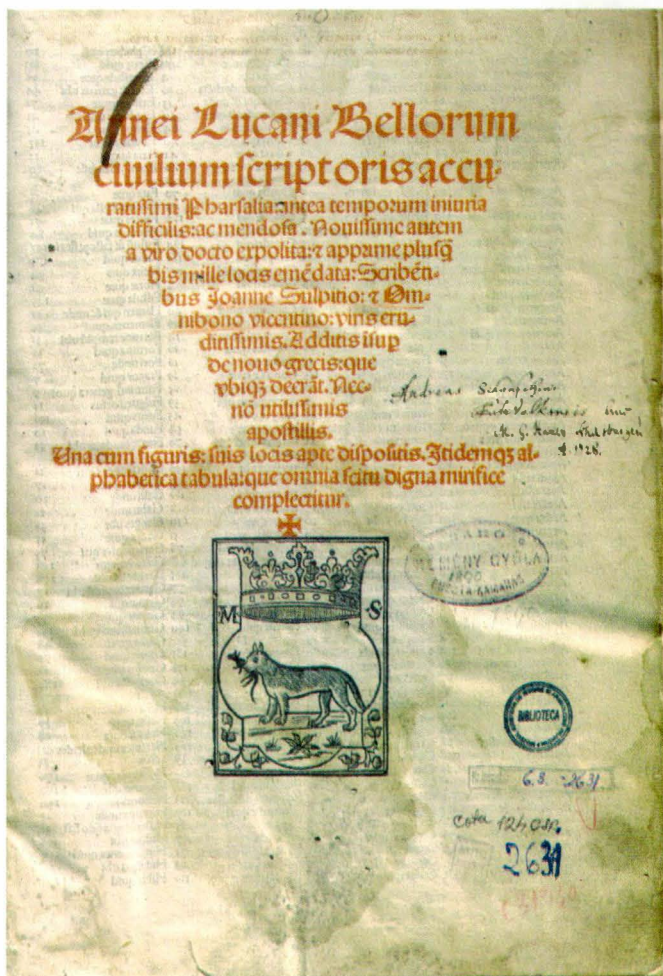 Annei Lucani Bellorum
ciuilium scriptoris accu-
ratissimi Pharsalia: antea temporum iniuria
difficilis: ac mendosa. Nouissime autem
a viro docto expolita: ⁊ apprime plusq̃
bis mille locis emẽdata: Scribẽti-
bus Joanne Sulpitio: ⁊ Om-
nibono vicentino: viris eru-
ditissimis. Additis isup
de nouo grecis: que
vbiqꝫ deerãt. Nec-
nõ utilissimis
apostillis.
Una cum figuris: suis locis apte dispositis. Itidemqꝫ al-
phabetica tabula: que omnia scitu digna mirifice
complectitur.
Andreas
M. G.
A. 1728.
M S
KEMÉNY GYULA
1900
BIBLIOTECA
6.8. 2631
Cota 124
2631